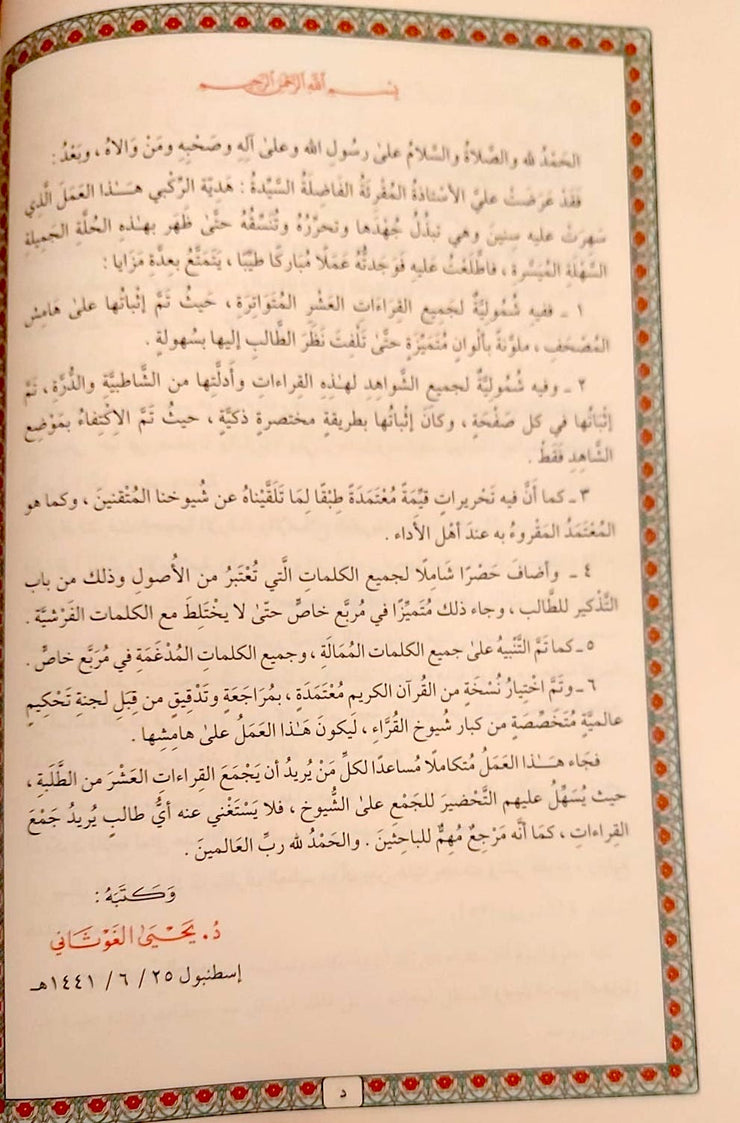 بسم الله الرحمن الرحيم
الحَمْدُ لله والصَّلاةُ والسَّلامُ علىٰ رسُولِ الله وعلىٰ آلِهِ وصَحْبِهِ ومَنْ وَالاهُ ، وبَعْدُ :
فَقَدْ عَرَضَتْ عليَّ الأسْتاذةُ المُقْرِئَةُ الفَاضِلَةُ السَّيِّدةُ : هَديَّة الرِّكْبي هَـٰذا العَمَلَ الَّذِي
سَهِرَتْ عليه سِنينَ وهي تبذُلُ جُهْدَها وتحرِّرُهُ وتُنَسِّقُهُ حتَّىٰ ظهَر بهـٰذهِ الحُلَّةِ الجَميلةِ
السَّهْلَةِ المُيَسَّرةِ ، فاطَّلَعْتُ عليهِ فَوَجَدتُّهُ عَمَلًا مُبَاركًا طيِّبًا ، يَتَمَتَّعُ بعدَّة مَزَايا :
١ ـ ففيهِ شُمُوليَّةٌ لجَمِيع القِرَاءَات العَشْرِ المُتَوَاتِرَة ، حَيثُ تَمَّ إثْباتُها علىٰ هَامِش
المُصْحَفِ ، ملوَّنةً بألْوانٍ مُتَمَيِّزَةٍ حتَّىٰ تَلْفِتَ نَظَرَ الطَّالب إليها بسُهولةٍ .
٢ ـ وفيه شُمُوليَّةٌ لجميع الشَّواهِدِ لهـٰذِهِ القِراءاتِ وأدلَّتِها من الشَّاطبيَّةِ والدُّرَّة ، تَمَّ
إثْبَاتُها في كل صَفْحَةٍ ، وكَانَ إثْباتُها بطريقةٍ مختصرةٍ ذكيَّةٍ ، حيثُ تَمَّ الِاكْتِفاءُ بمَوْضِعِ
الشَّاهِدِ فَقَطْ .
٣ ـ كما أَنَّ فيه تَحْريراتٍ قيِّمَةً مُعْتَمَدَةً طِبْقًا لِمَا تَلَقَّيْناهُ عن شُيوخنا المُتْقنينَ ، وكما هو
المُعْتَمَدُ المَقْروءُ به عندَ أهْل الأداء .
٤ ـ وأضافَ حَصْرًا شَاملًا لجميع الكلماتِ الَّتي تُعْتَبَرُ من الأُصولِ وذلك من باب
التَّذْكير للطَّالب ، وجاء ذلك مُتَميِّزًا في مُربَّع خاصٍّ حتَّىٰ لا يخْتَلِطَ مع الكلمات الفَرْشيَّة .
٥ ـ كما تَمَّ التَّنْبيهُ علىٰ جميع الكلمات المُمَالَةِ ، وجميع الكلماتِ المُدْغَمَةِ في مُرَبَّع خاصٍّ .
٦ ـ وتَمَّ اخْتِيارُ نُسْخَةٍ من القُرآن الكريم مُعْتَمَدَةٍ ، بمُرَاجَعَةٍ وتَدْقِيقٍ من قِبَلِ لجنةِ تَحْكِيمٍ
عالميَّةٍ مُتَخَصِّصَةٍ من كبار شيُوخ القُرَّاءِ ، لَيكونَ هَـٰذا العَمَلُ علىٰ هامِشِها .
فجَاء هـٰذا العَمَلُ مُتكاملًا مُساعدًا لكلِّ مَنْ يُريدُ أن يَجْمَعَ القِراءاتِ العَشْرَ من الطَّلَبةِ ،
حيث يُسَهِّلُ عليهم التَّحْضيرَ للجَمْعِ علىٰ الشُّيوخِ ، فلا يَسْتَغْني عنه أيُّ طالبٍ يُريدُ جَمْعَ
القِراءَاتِ ، كمَا أنَّه مَرْجِعٌ مُهِمٌّ للباحِثينَ . والحَمْدُ لله ربِّ العَالمينَ .
وَكَتَبَهُ :
د. يَحْيَىٰ الغَوْثَاني
إسطنبول ٢٥ / ٦ / ١٤٤١هـ
د